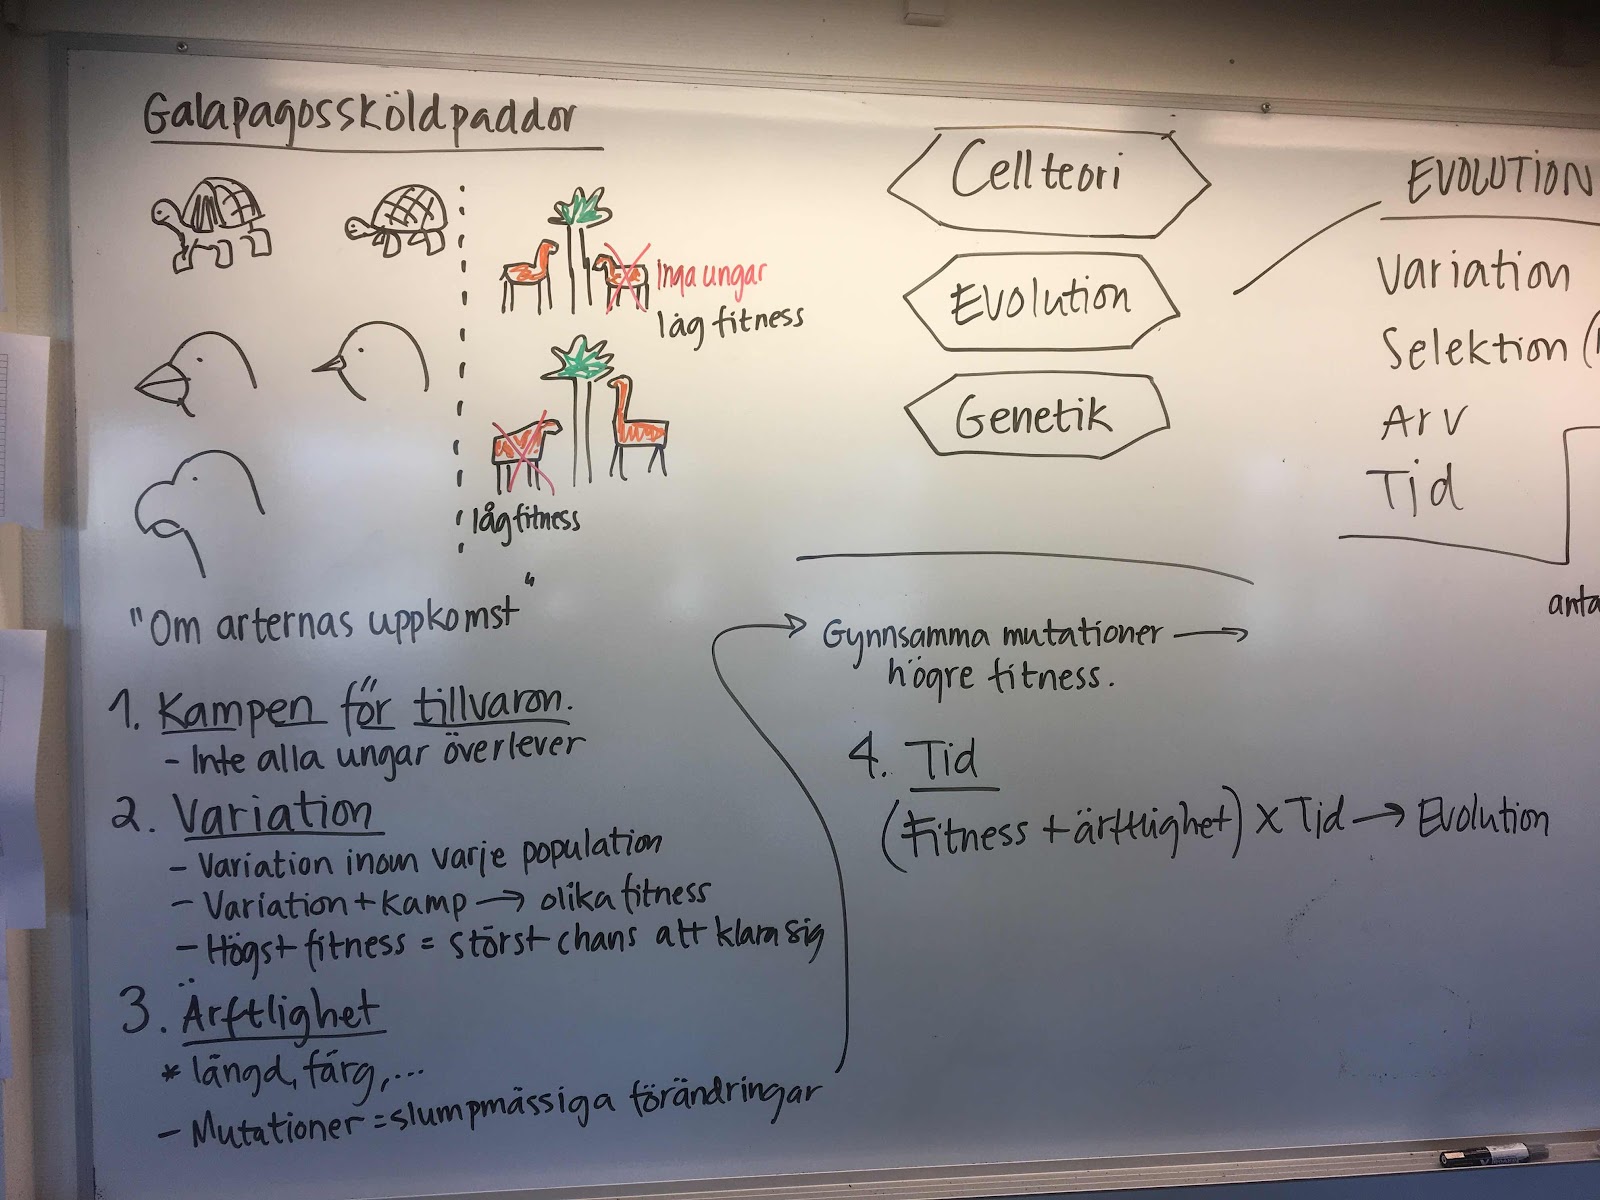 Galapagossköldpaddor
Inga ungar
låg fitness
låg fitness
"Om arternas uppkomst"
1. Kampen för tillvaron.
- Inte alla ungar överlever
2. Variation
- Variation inom varje population
- Variation + kamp → olika fitness
- Högst fitness = störst chans att klara sig
3. Ärftlighet
* längd, färg,...
- Mutationer = slumpmässiga förändringar
Cellteori
Evolution
Genetik
Gynnsamma mutationer →
högre fitness.
4. Tid
(Fitness + ärftlighet) x Tid → Evolution
EVOLUTION
Variation
Selektion (
Arv
Tid
anta